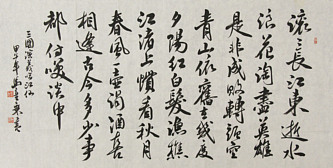 滚滚长江东逝水
浪花淘盡英雄
是非成敗轉頭空
青山依舊在幾度
夕陽紅白髮漁樵
江渚上慣看秋月
春風一壺濁酒喜
相逢古今多少事
都付笑談中
三國演義吟江僊
甲午年